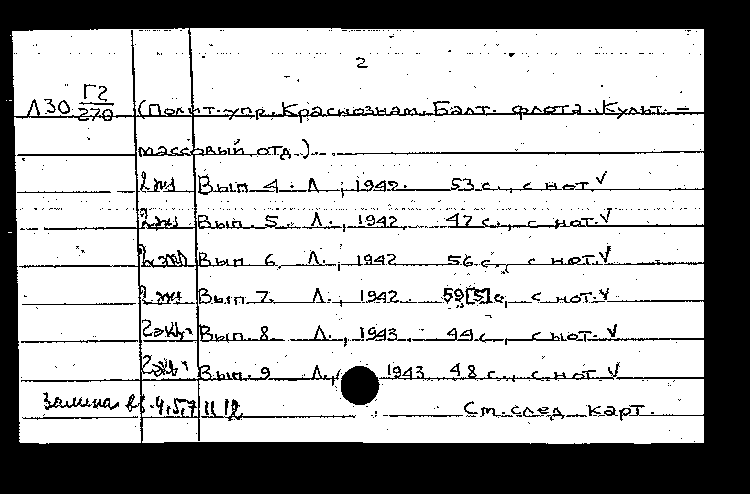 2
Л30 Г2/270 (Полит. упр. Краснознам. Балт. флота. Культ.-
массовый отд.)
2 экз Вып. 4. Л., 1942. 53 с., с нот. V
2 экз Вып. 5 Л., 1942. 47 с., с нот. V
2 экз Вып. 6. Л., 1942 56 с., с нот. V
2 экз Вып. 7. Л., 1942. 59[5]с, с нот. V
2 экз. Вып. 8 Л., 1943. 44 с., с нот. V
2 экз. Вып. 9 Л., 1943 48 с., с нот. V
4,5,7 11 12 См. след. карт.